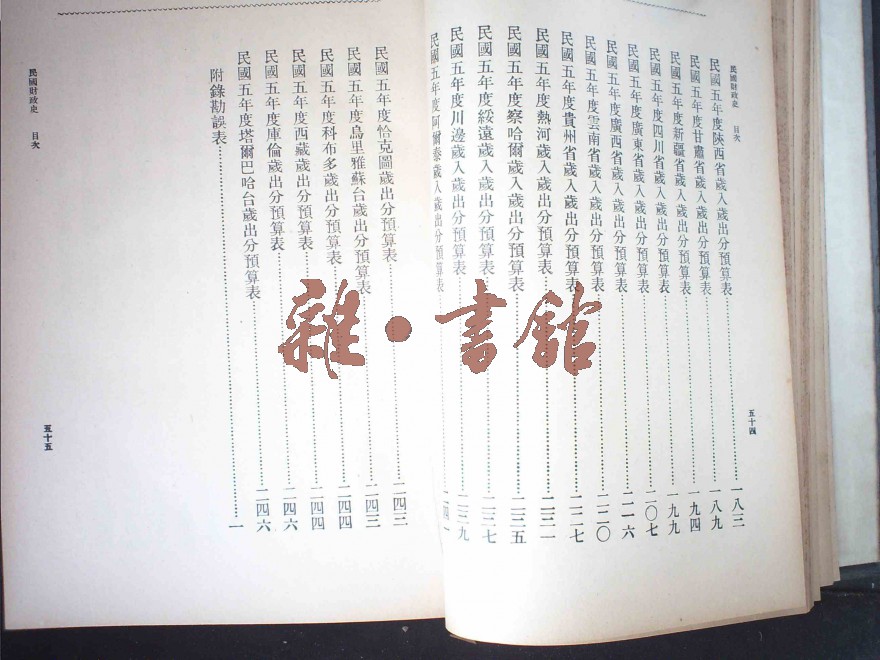 民國財政史 目次
五十四
民國五年度陝西省歲入歲出分預算表 一八三
民國五年度甘肅省歲入歲出分預算表 一八九
民國五年度新疆省歲入歲出分預算表 一九四
民國五年度四川省歲入歲出分預算表 一九九
民國五年度廣東省歲入歲出分預算表 二〇七
民國五年度廣西省歲入歲出分預算表 二一六
民國五年度雲南省歲入歲出分預算表 二二〇
民國五年度貴州省歲入歲出分預算表 二二七
民國五年度熱河歲入歲出分預算表 二三一
民國五年度察哈爾歲入歲出分預算表 二三五
民國五年度綏遠歲入歲出分預算表 二三七
民國五年度川邊歲入歲出分預算表 二三九
民國五年度阿爾泰歲入歲出分預算表 二四一
民國五年度恰克圖歲出分預算表 二四三
民國五年度烏里雅蘇台歲出分預算表 二四三
民國五年度科布多歲出分預算表 二四四
民國五年度西藏歲出分預算表 二四四
民國五年度庫倫歲出分預算表 二四六
民國五年度塔爾巴哈台歲出分預算表 二四六
附錄勘誤表 一
民國財政史 目次
五十五
雜·書館